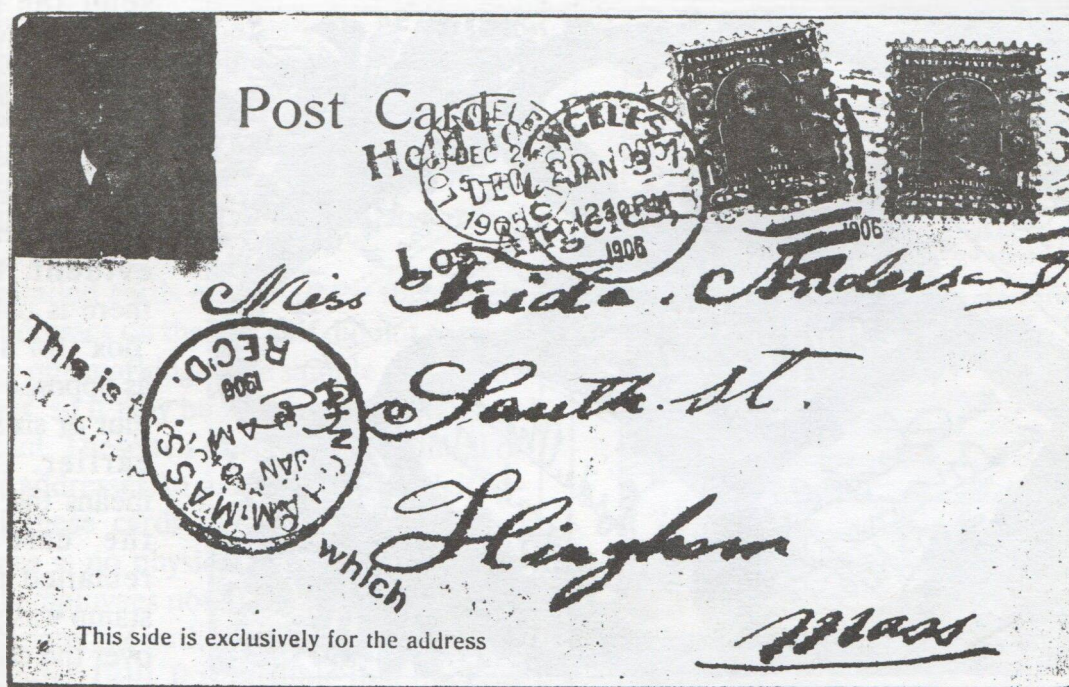 Post Card
Held for
LOS ANGELES
DEC 2
DEC
1905
JAN 3
12 30 PM
1906
Los Angeles,
1906
Miss Frida. Anderson
South. St.
Hingham
Mass
This is
which
HINGHAM, MASS.
JAN
AM
1906
REC'D.
This side is exclusively for the address